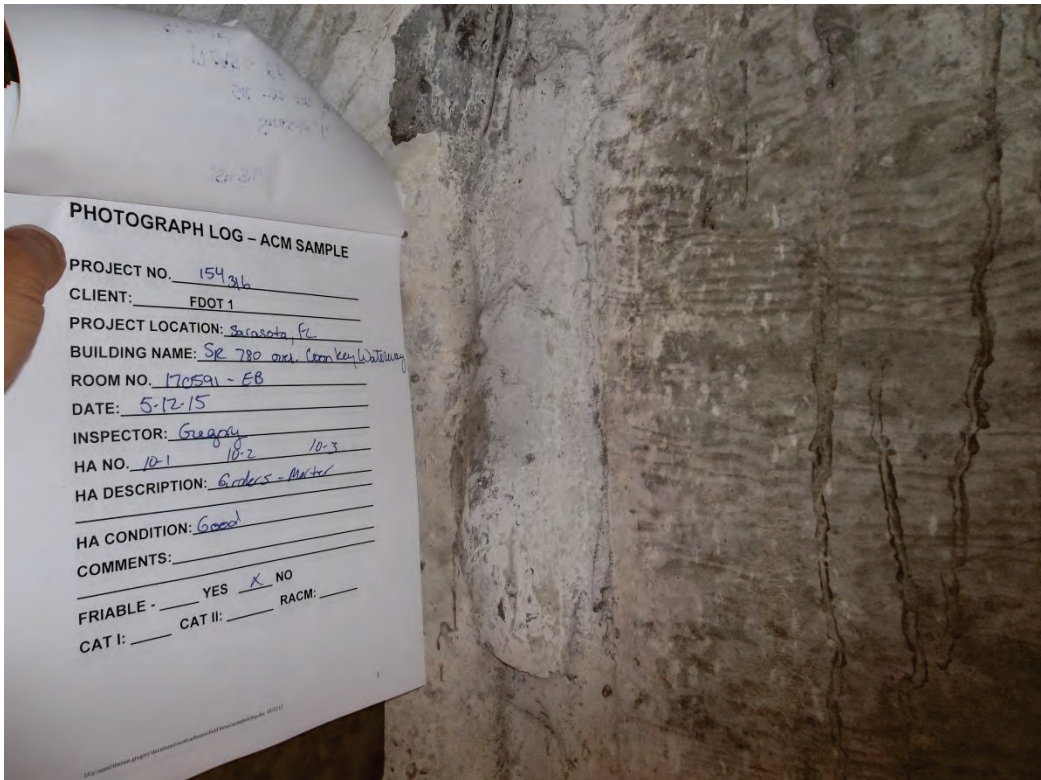 PHOTOGRAPH LOG – ACM SAMPLE
PROJECT NO. 154316
CLIENT: FDOT 1
PROJECT LOCATION: Sarasota, FL
BUILDING NAME: SR 780 over Coon Key Waterway
ROOM NO. 170591 - EB
DATE: 5-12-15
INSPECTOR: Gregory
HA NO. 10-1 10-2 10-3
HA DESCRIPTION: Girders - Mortar
HA CONDITION: Good
COMMENTS:
FRIABLE - YES X NO
CAT I: CAT II: RACM:
1